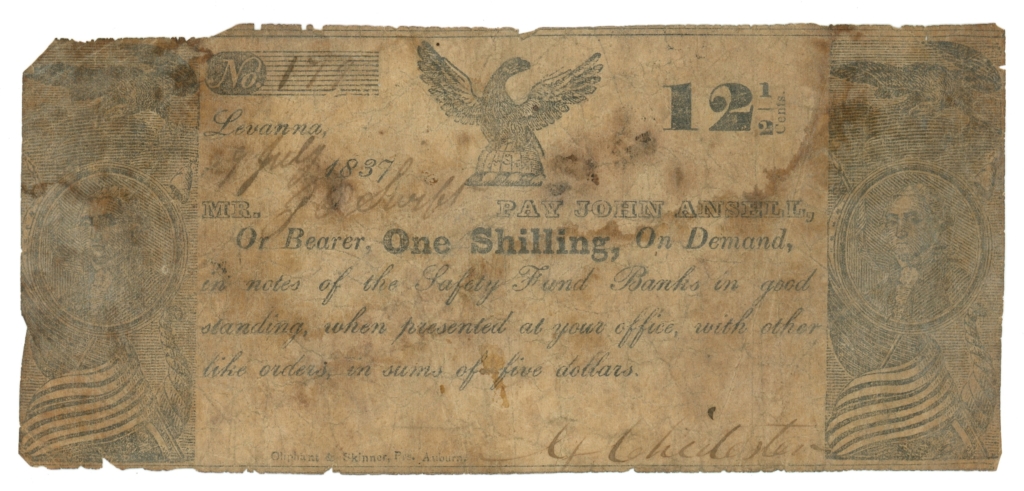 No. 17
12 1/2 Cents
Levanna,
29 July 1837
MR. Swift PAY JOHN ANSELL,
Or Bearer, One Shilling, On Demand,
in notes of the Safety Fund Banks in good
standing, when presented at your office, with other
like orders, in sums of five dollars.
Chidester
Oliphant & Skinner, Pr. Auburn.